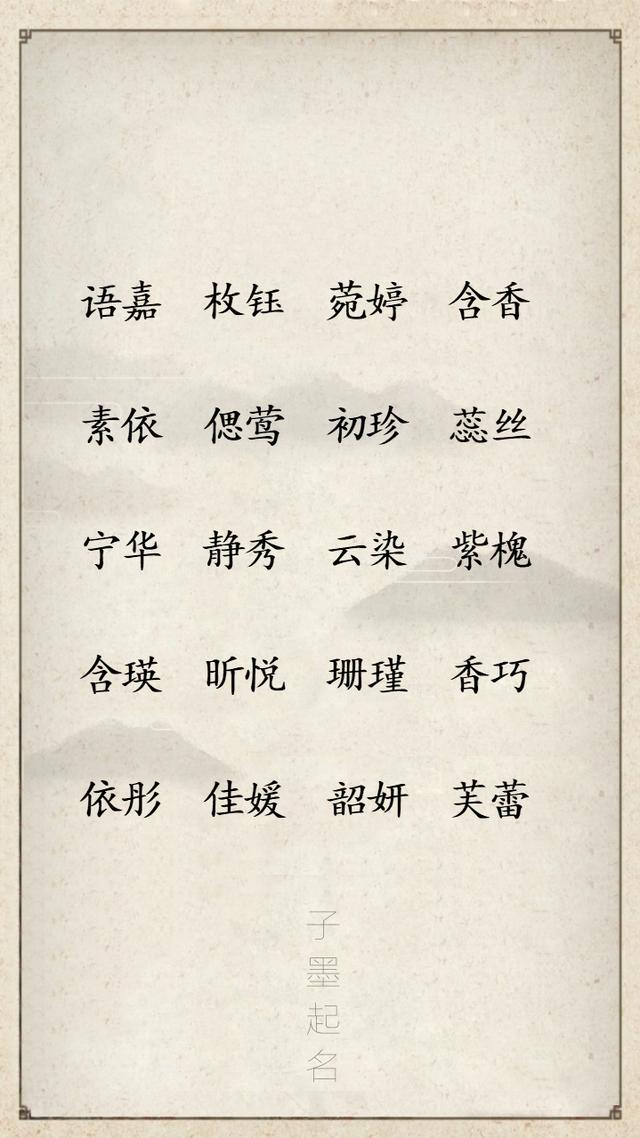 语嘉 枚钰 菀婷 含香
素依 偲莺 初珍 蕊丝
宁华 静秀 云染 紫槐
含瑛 昕悦 珊瑾 香巧
依彤 佳媛 韶妍 芙蕾
子墨起名